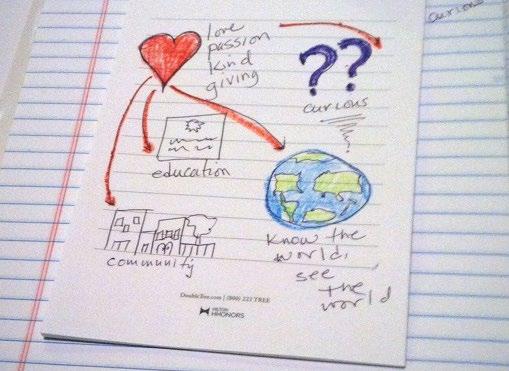 love
passion
kind
giving
??
curious
education
community
know the
world,
see
the
world
DoubleTree.com | (800) 222 TREE
HILTON
HHONORS
curious